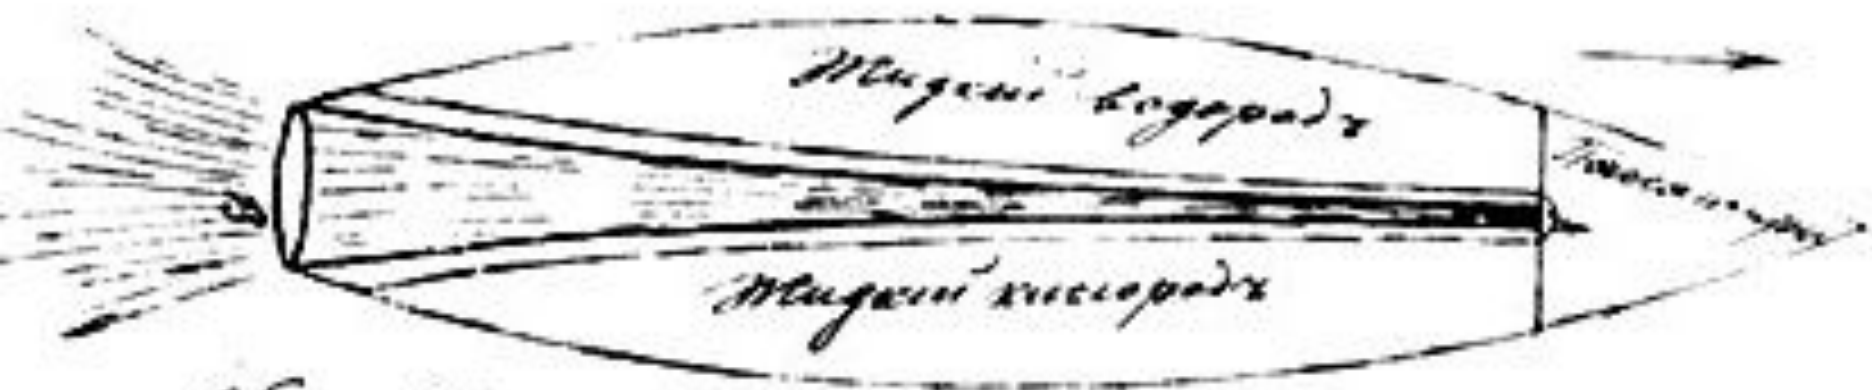 Жидкій водородъ
Жидкій кислородъ